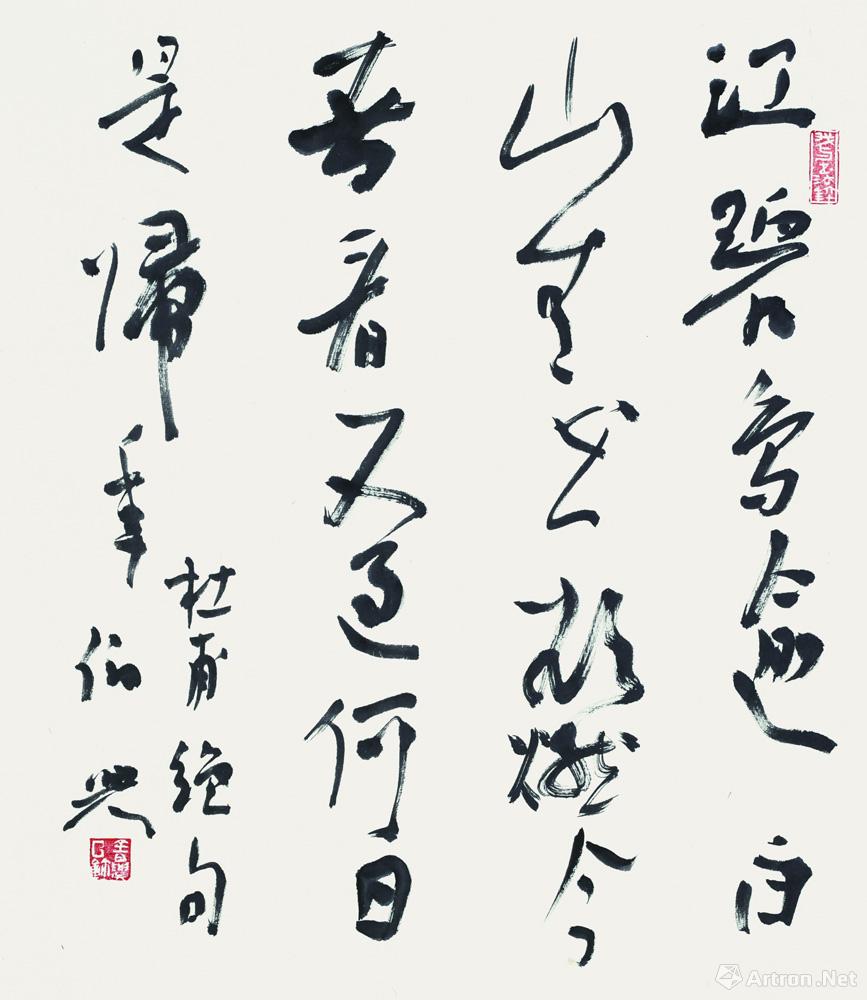 江碧鳥逾白
山青花欲燃今
春看又過何日
是歸年
杜甫絕句
伯興
Artron.Net